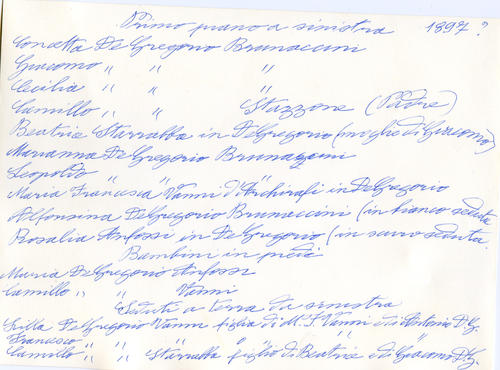 Primo piano a sinistra 1897?
Concetta De Gregorio Brunaccini
Giacomo " " "
Cecilia " " "
Camillo " " Stazzone (Padre)
Beatrice Starrabba in De Gregorio (moglie di Giacomo)
Marianna De Gregorio Brunaccini
Leopoldo " " "
Maria Francesca Vanni d'Archirafi in De Gregorio
Alfonsina De Gregorio Brunaccini (in bianco seduta
Rosalia Anfossi in De Gregorio (in scuro seduta
Bambini in piedi
Maria De Gregorio Anfossi
Camillo " " Vanni
Seduti a terra da sinistra
De Gregorio Vanni figlia di M. F. Vanni e di Antonio D. G.
Francesco " " " "
Camillo " " Starrabba figlio di Beatrice e di Giacomo D. G.